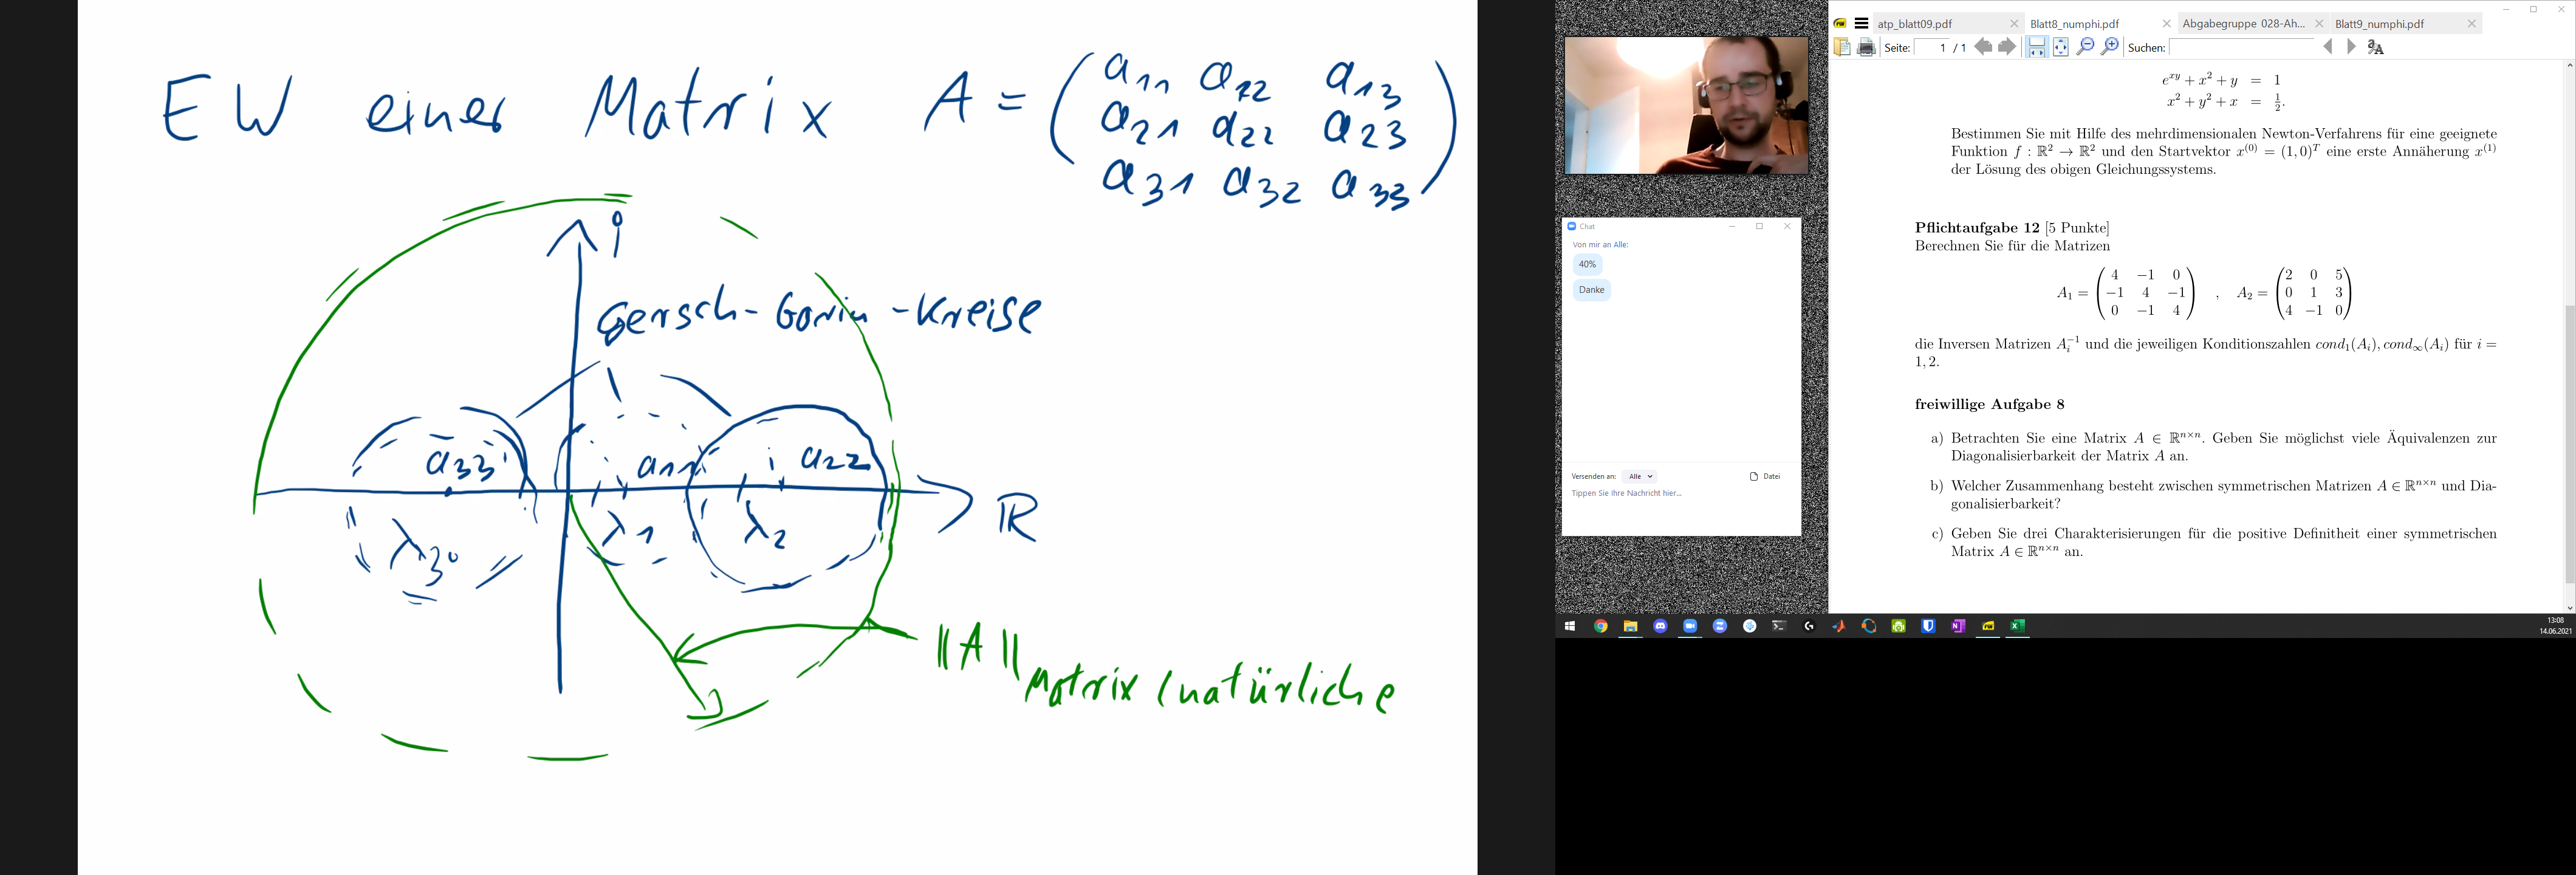 EW einer Matrix A = ( a11 a12 a13
a21 a22 a23
a31 a32 a33 )
i
Gersch-Gorin-Kreise
a33 a11 a22
ℝ
λ3 λ1 λ2
||A|| Matrix (natürliche
Chat
Von mir an Alle:
40%
Danke
Versenden an: Alle Datei
Tippen Sie Ihre Nachricht hier...
atp_blatt09.pdf Blatt8_numphi.pdf Abgabegruppe 028-Ah... Blatt9_numphi.pdf
Seite: 1 / 1 Suchen:
e^{xy} + x² + y = 1
x² + y² + x = 1/2.
Bestimmen Sie mit Hilfe des mehrdimensionalen Newton-Verfahrens für eine geeignete
Funktion f : ℝ² → ℝ² und den Startvektor x^{(0)} = (1, 0)^T eine erste Annäherung x^{(1)}
der Lösung des obigen Gleichungssystems.
Pflichtaufgabe 12 [5 Punkte]
Berechnen Sie für die Matrizen
A₁ = ( 4 −1 0
−1 4 −1
0 −1 4 ) , A₂ = ( 2 0 5
0 1 3
4 −1 0 )
die Inversen Matrizen A_i^{-1} und die jeweiligen Konditionszahlen cond₁(A_i), cond_∞(A_i) für i =
1, 2.
freiwillige Aufgabe 8
a) Betrachten Sie eine Matrix A ∈ ℝ^{n×n}. Geben Sie möglichst viele Äquivalenzen zur
Diagonalisierbarkeit der Matrix A an.
b) Welcher Zusammenhang besteht zwischen symmetrischen Matrizen A ∈ ℝ^{n×n} und Dia-
gonalisierbarkeit?
c) Geben Sie drei Charakterisierungen für die positive Definitheit einer symmetrischen
Matrix A ∈ ℝ^{n×n} an.
13:08
14.06.2021